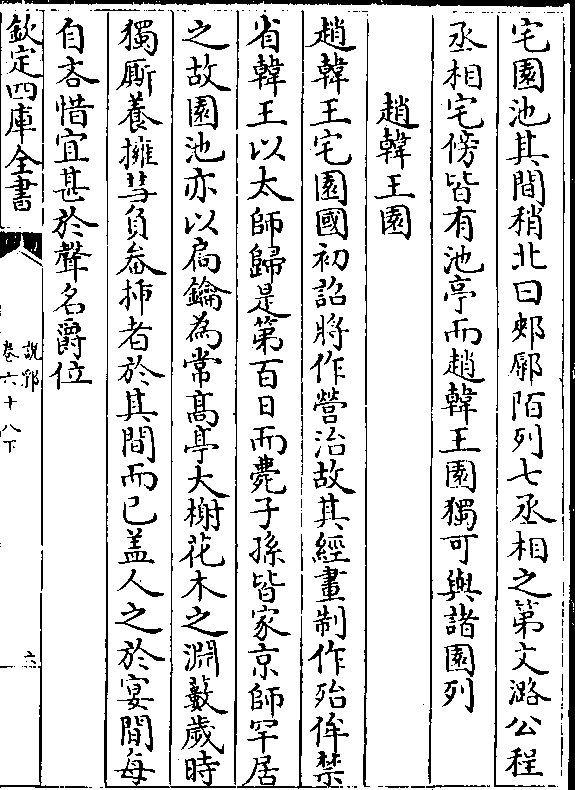 宅園池其間稍北曰郟鄏陌列七丞相之第文潞公程
丞相宅傍皆有池亭而趙韓王園獨可與諸園列
趙韓王園
趙韓王宅園國初詔將作營治故其經畫制作殆侔禁
省韓王以太師歸是第百日而薨子孫皆家京師罕居
之故園池亦以扃鑰為常髙亭大榭花木之淵藪歲時
獨厮養擁彗負畚揷者於其間而已盖人之於宴閒每
自吝惜宜甚於聲名爵位
欽定四庫全書
說郛
卷六十八下
六